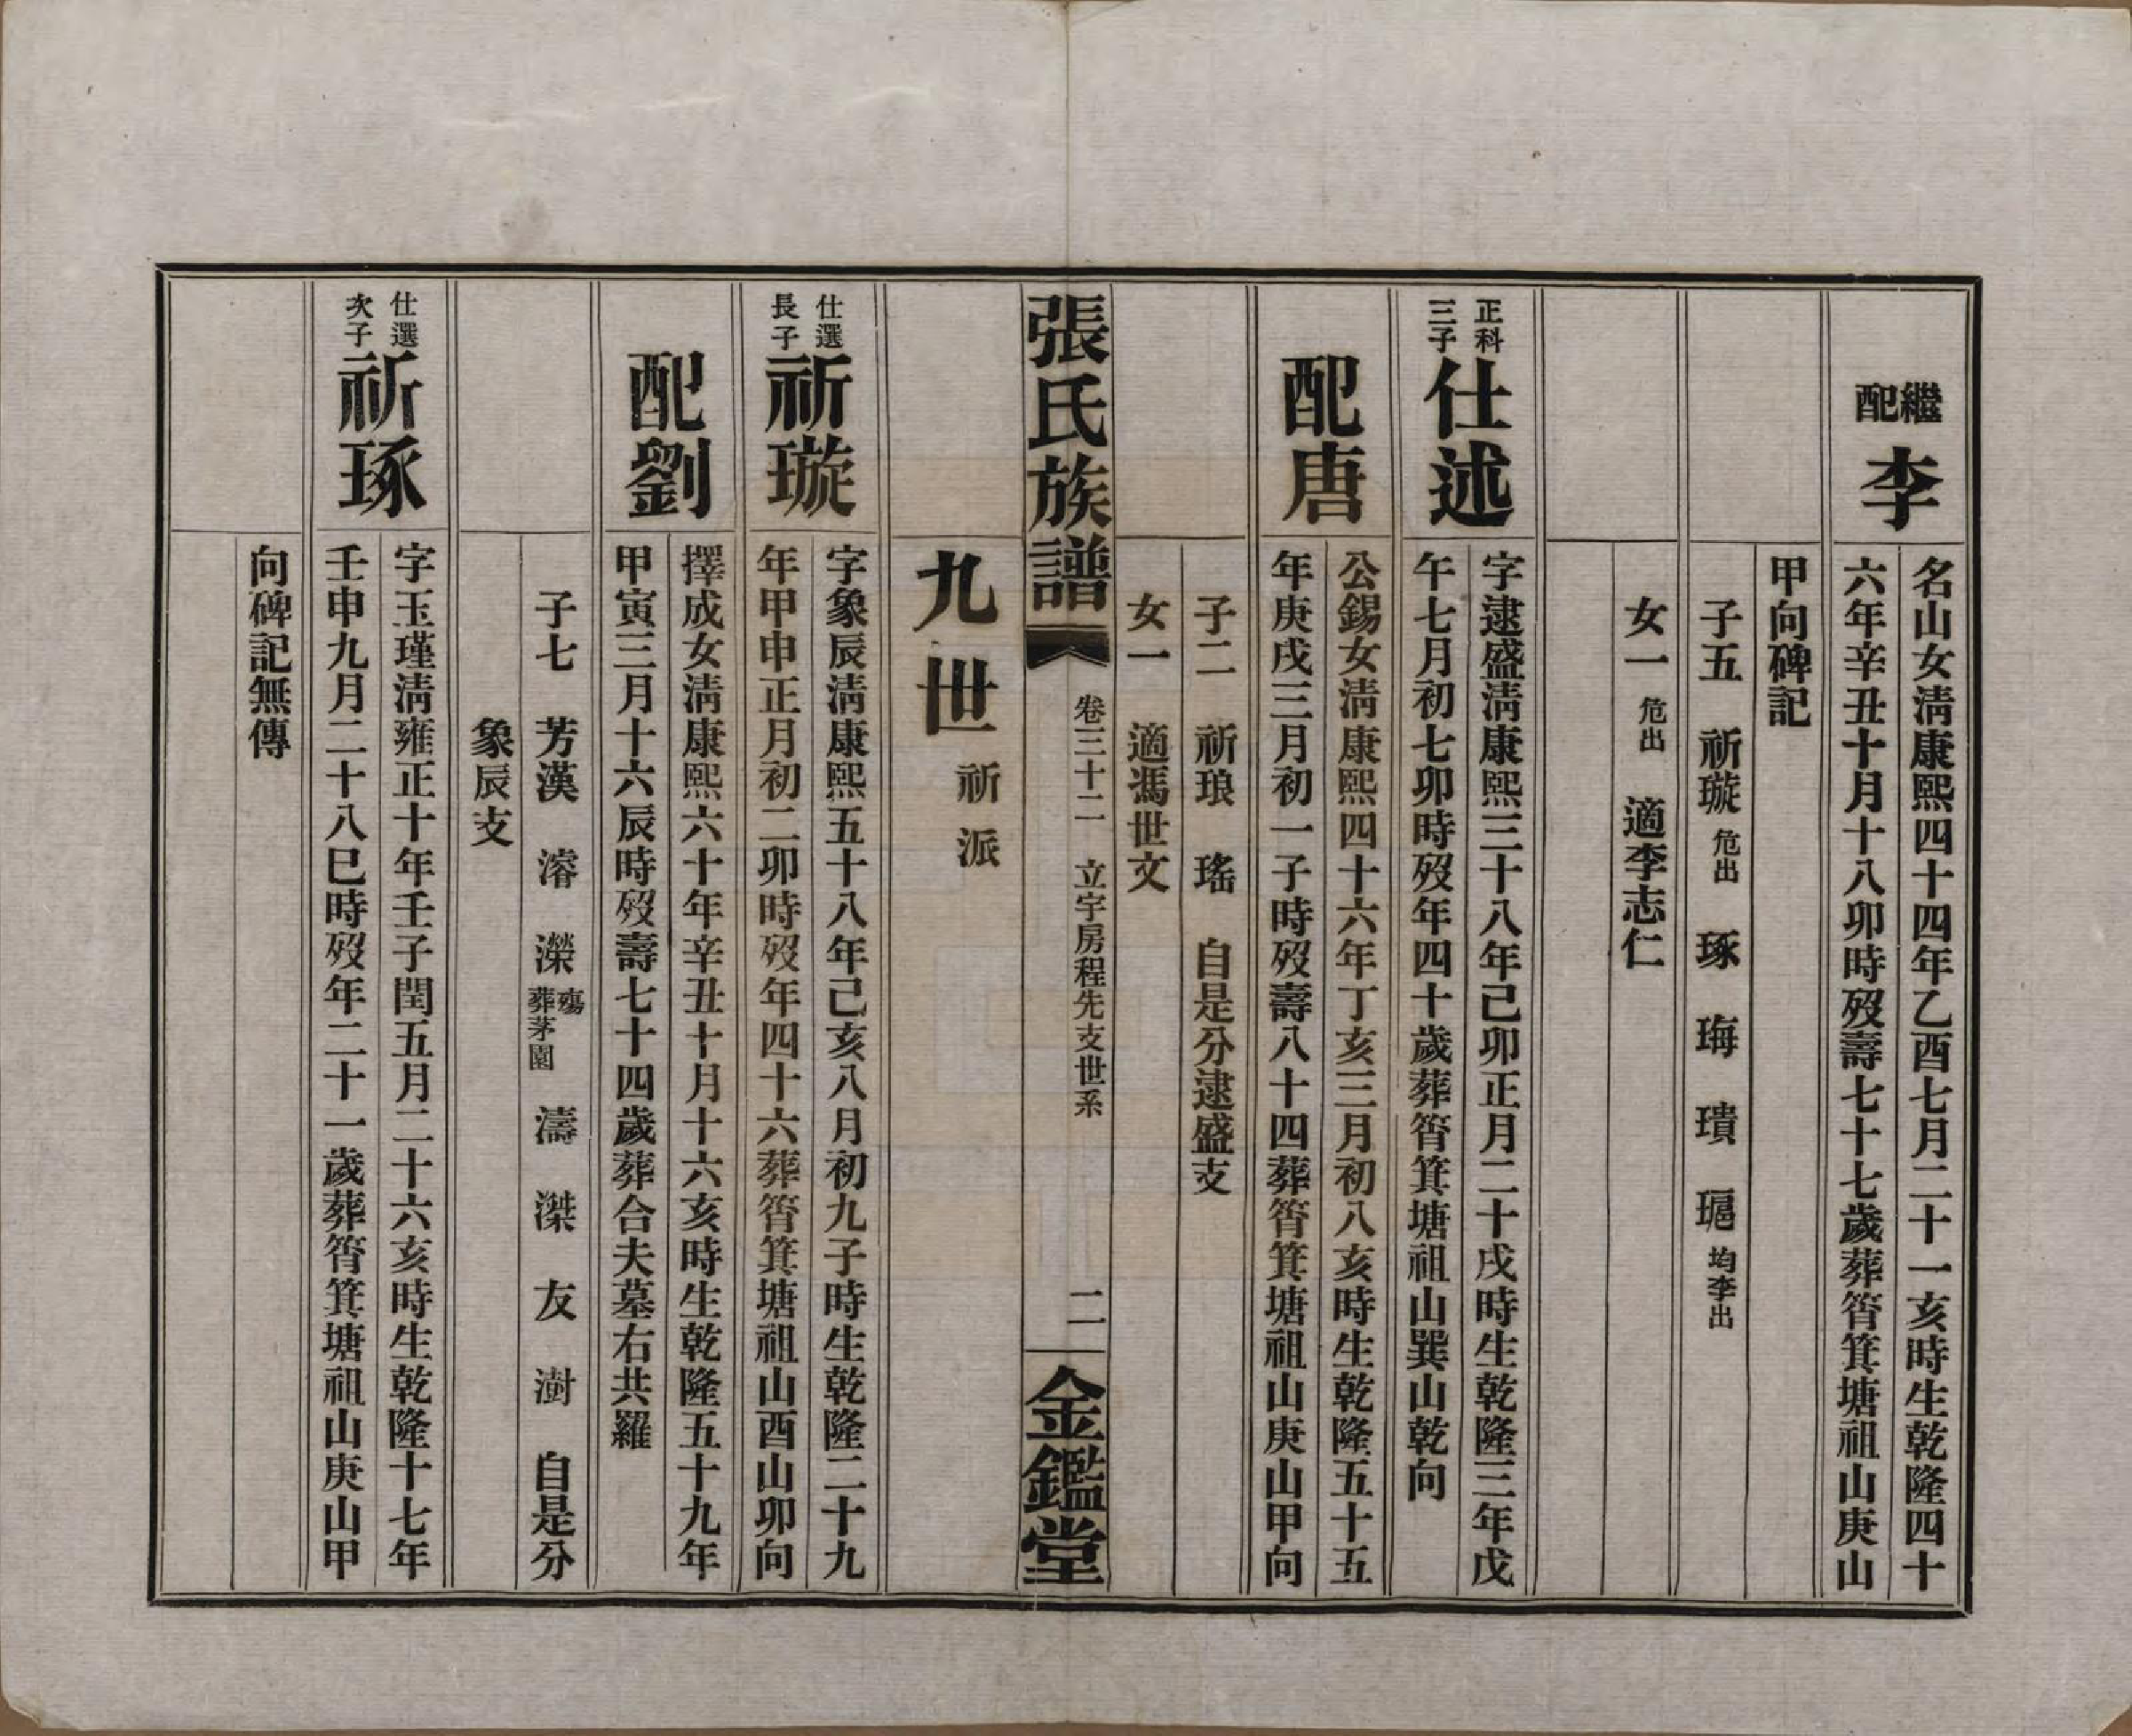 繼配 李
名山女淸康熙四十四年乙酉七月二十一亥時生乾隆四十
六年辛丑十月十八卯時歿壽七十七歲葬筲箕塘祖山庚山
甲向碑記
子五 祈璇 危出 琢 珻 璝 㻞 均李出
女一 危出 適李志仁
正科三子 仕述
字逮盛淸康熙三十八年己卯正月二十戌時生乾隆三年戊
午七月初七卯時歿年四十歲葬筲箕塘祖山巽山乾向
配唐
公錫女淸康熙四十六年丁亥三月初八亥時生乾隆五十五
年庚戌三月初一子時歿壽八十四葬筲箕塘祖山庚山甲向
子二 祈琅 瑤 自是分逮盛支
女一 適馮世文
張氏族譜 卷三十二 立宇房程先支世系 二 金鑑堂
九世 祈派
仕選長子 祈璇
字象辰淸康熙五十八年己亥八月初九子時生乾隆二十九
年甲申正月初二卯時歿年四十六葬筲箕塘祖山酉山卯向
配劉
擇成女淸康熙六十年辛丑十月十六亥時生乾隆五十九年
甲寅三月十六辰時歿壽七十四歲葬合夫墓右共羅
子七 芳漢 濬 濚 殤葬茅園 濤 滐 友 澍 自是分
象辰支
仕選次子 祈琢
字玉瑾淸雍正十年壬子閏五月二十六亥時生乾隆十七年
壬申九月二十八巳時歿年二十一歲葬筲箕塘祖山庚山甲
向碑記無傳